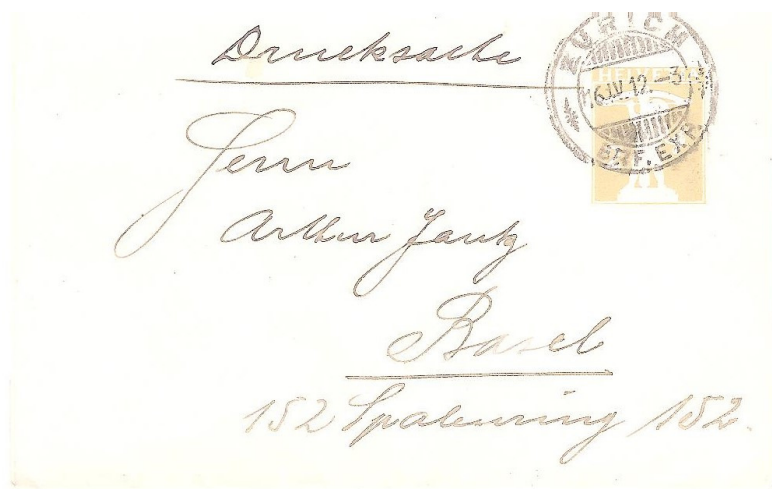 Drucksache
ZÜRICH
HELVETIA
16.IV.12.–3
BRF.EXP.
Herrn
Arthur Jantz
Basel
152 Spalenring 152.